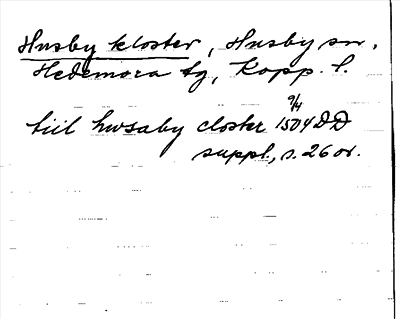 Husby kloster, Husby sn,
Hedemora tg, Kopp. l.
9/4
till hwsaby closter 1504 DD
suppl., s. 260.